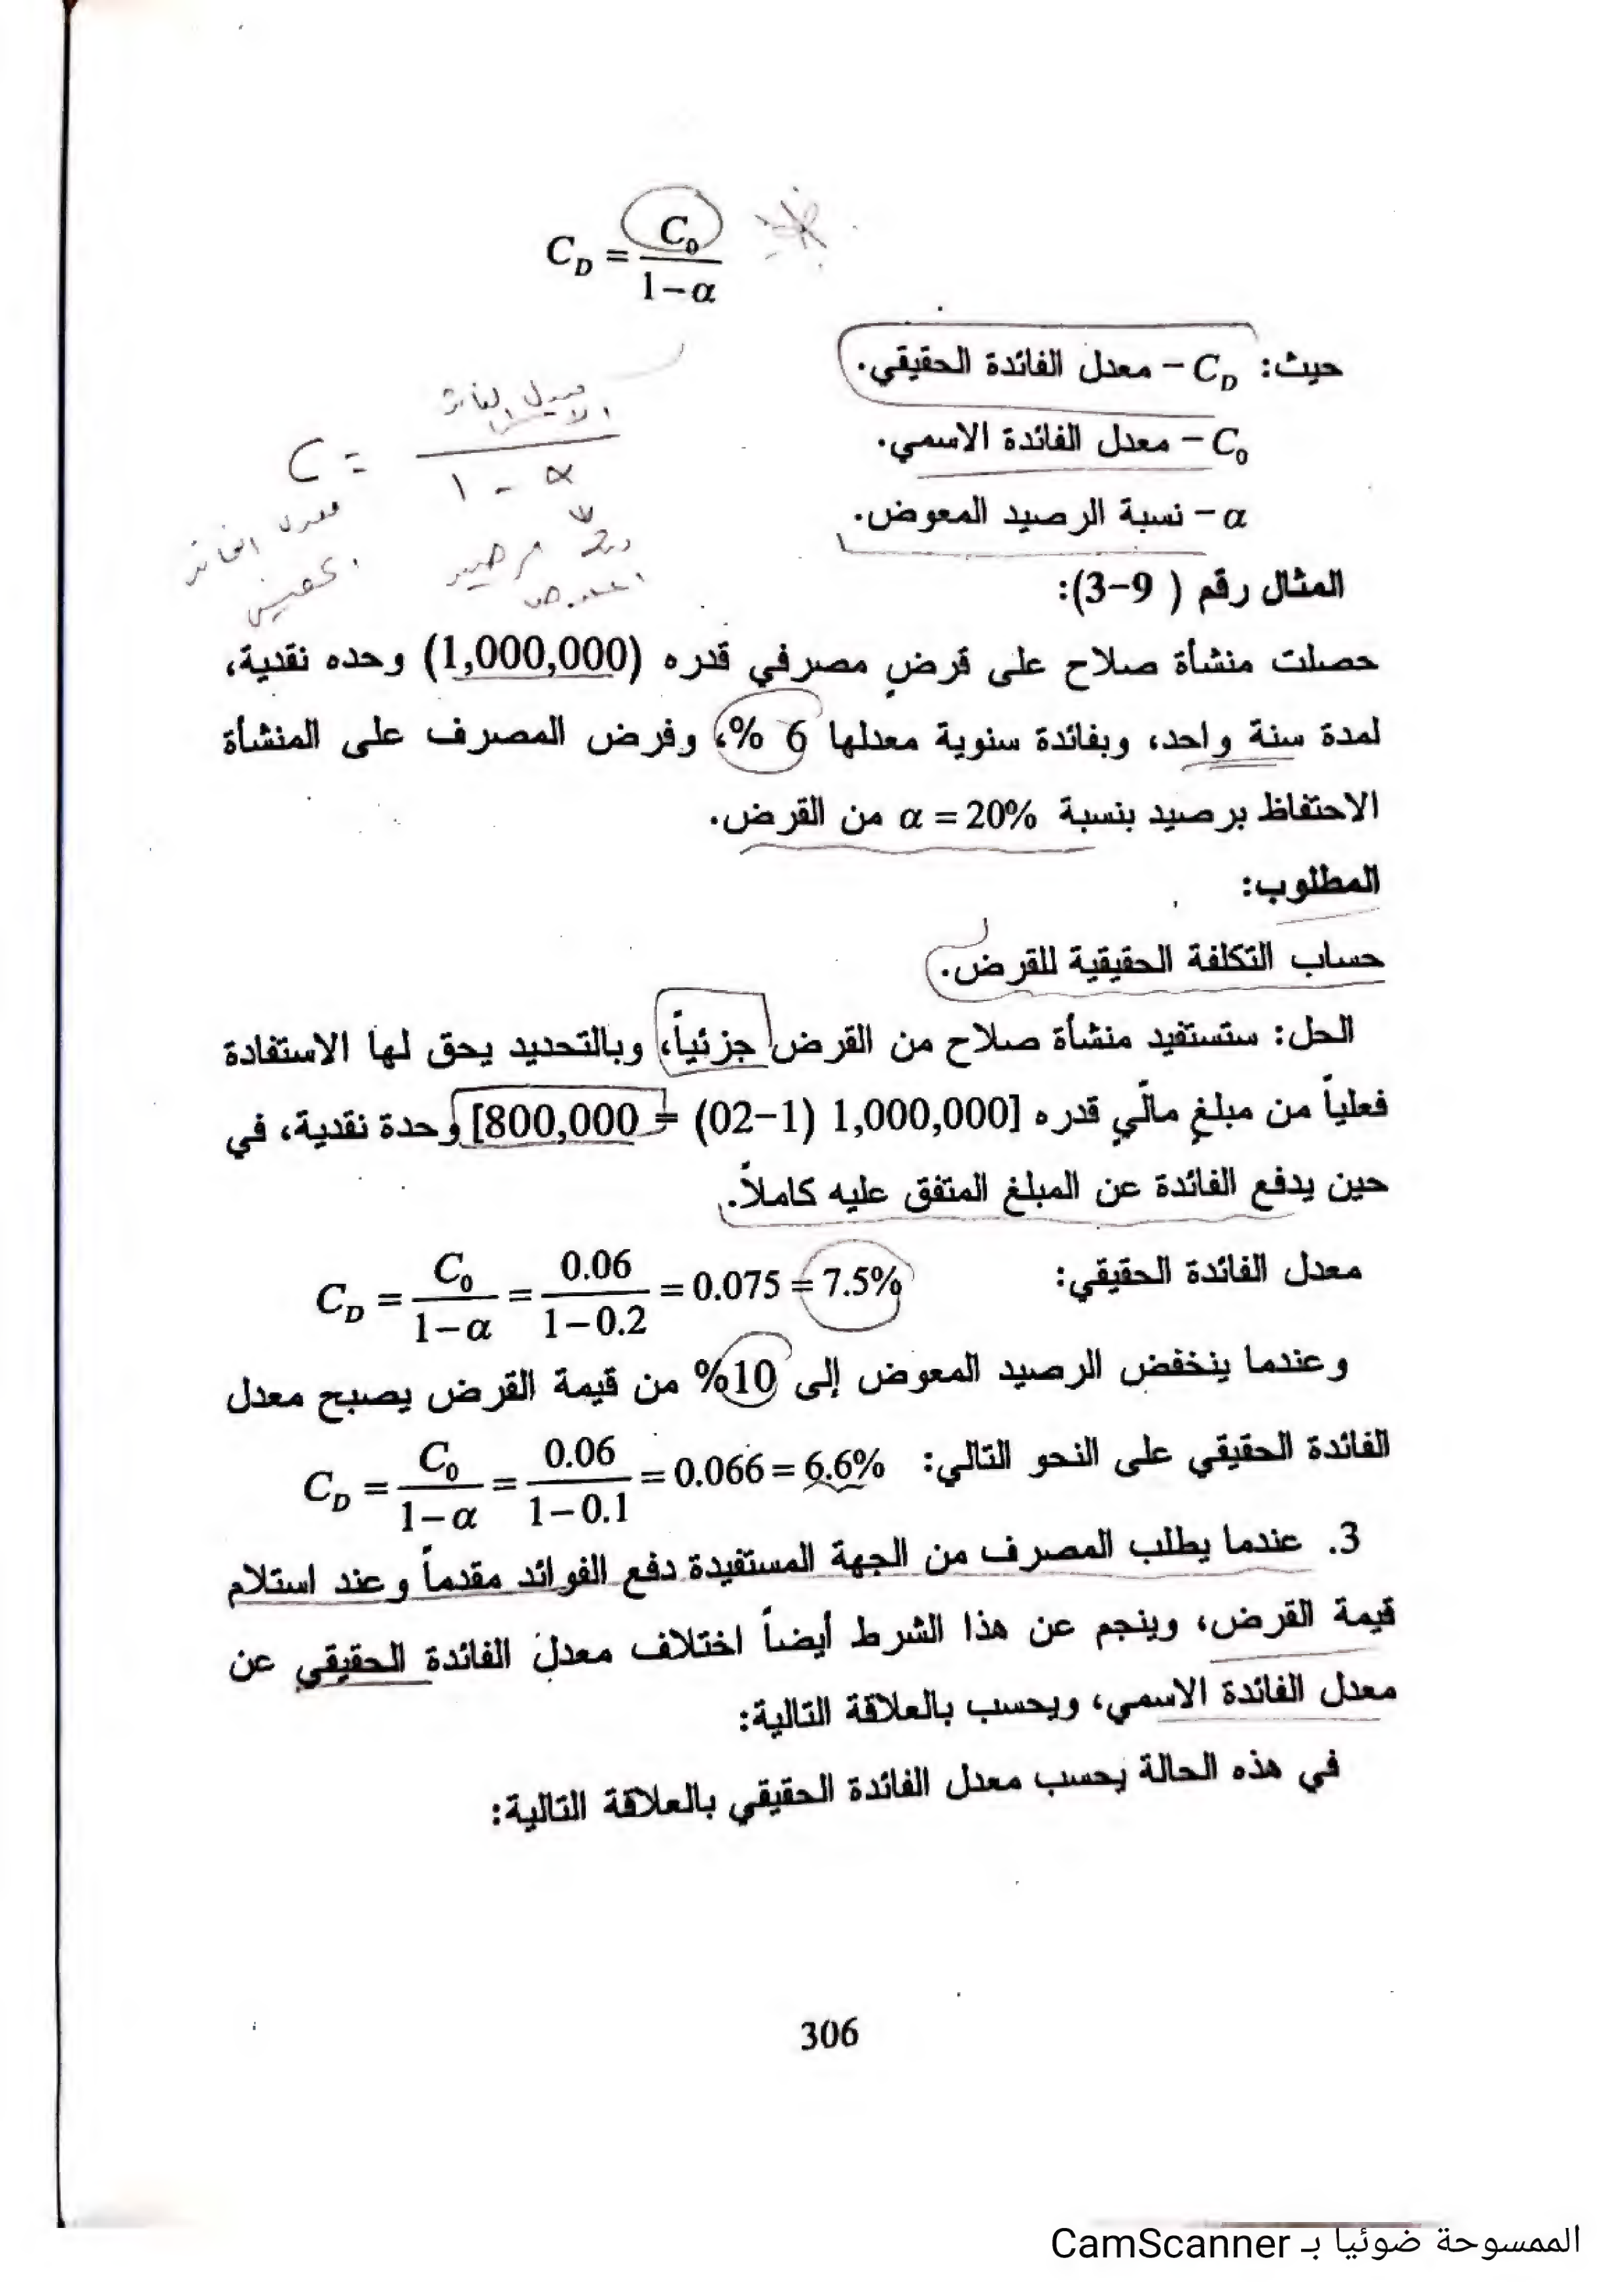 C_D = C_0 / (1-α)
حيث: C_D - معدل الفائدة الحقيقي.
C_0 - معدل الفائدة الاسمي.
α - نسبة الرصيد المعوض.
C = معدل الفائدة / 1 - α
المثال رقم ( 9-3):
حصلت منشأة صلاح على قرضٍ مصرفي قدره (1,000,000) وحده نقدية،
لمدة سنة واحد، وبفائدة سنوية معدلها 6 %، وفرض المصرف على المنشأة
الاحتفاظ برصيد بنسبة α = 20% من القرض.
المطلوب:
حساب التكلفة الحقيقية للقرض.
الحل: ستستفيد منشأة صلاح من القرض جزئياً، وبالتحديد يحق لها الاستفادة
فعلياً من مبلغٍ ماليٍ قدره [1,000,000 (1-02) = 800,000] وحدة نقدية، في
حين يدفع الفائدة عن المبلغ المتفق عليه كاملاً.
معدل الفائدة الحقيقي: C_D = C_0 / (1-α) = 0.06 / (1-0.2) = 0.075 = 7.5%
وعندما ينخفض الرصيد المعوض إلى 10% من قيمة القرض يصبح معدل
الفائدة الحقيقي على النحو التالي: C_D = C_0 / (1-α) = 0.06 / (1-0.1) = 0.066 = 6.6%
3. عندما يطلب المصرف من الجهة المستفيدة دفع الفوائد مقدماً وعند استلام
قيمة القرض، وينجم عن هذا الشرط أيضاً اختلاف معدل الفائدة الحقيقي عن
معدل الفائدة الاسمي، ويحسب بالعلاقة التالية:
في هذه الحالة يحسب معدل الفائدة الحقيقي بالعلاقة التالية:
306
الممسوحة ضوئيا بـ CamScanner